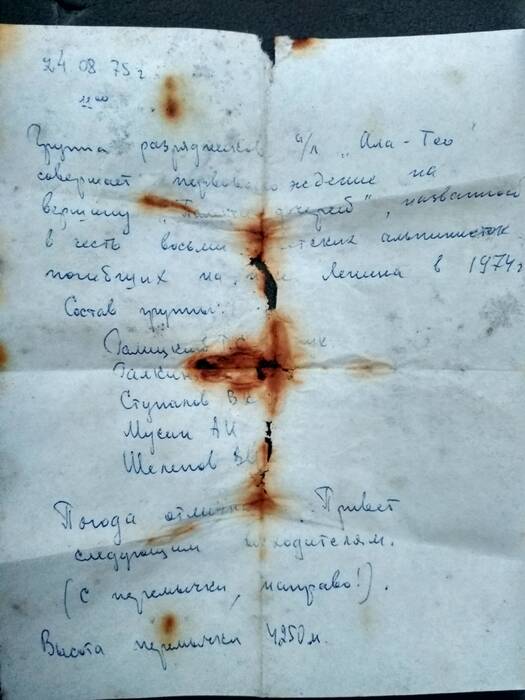 24 08 75 г
12⁰⁰
Группа разрядников а/л „Ала-Тоо"
совершает первовосхождение на
вершину
в честь восьми альпинисток
погибших на Ленина в 1974 г
Состав группы:
Галицкий
Галкин
Ступаков В
Мусин АИ
Шепепов В
Погода Привет
следующим
(с перемычки, направо!).
Высота перемычки 4250 м.